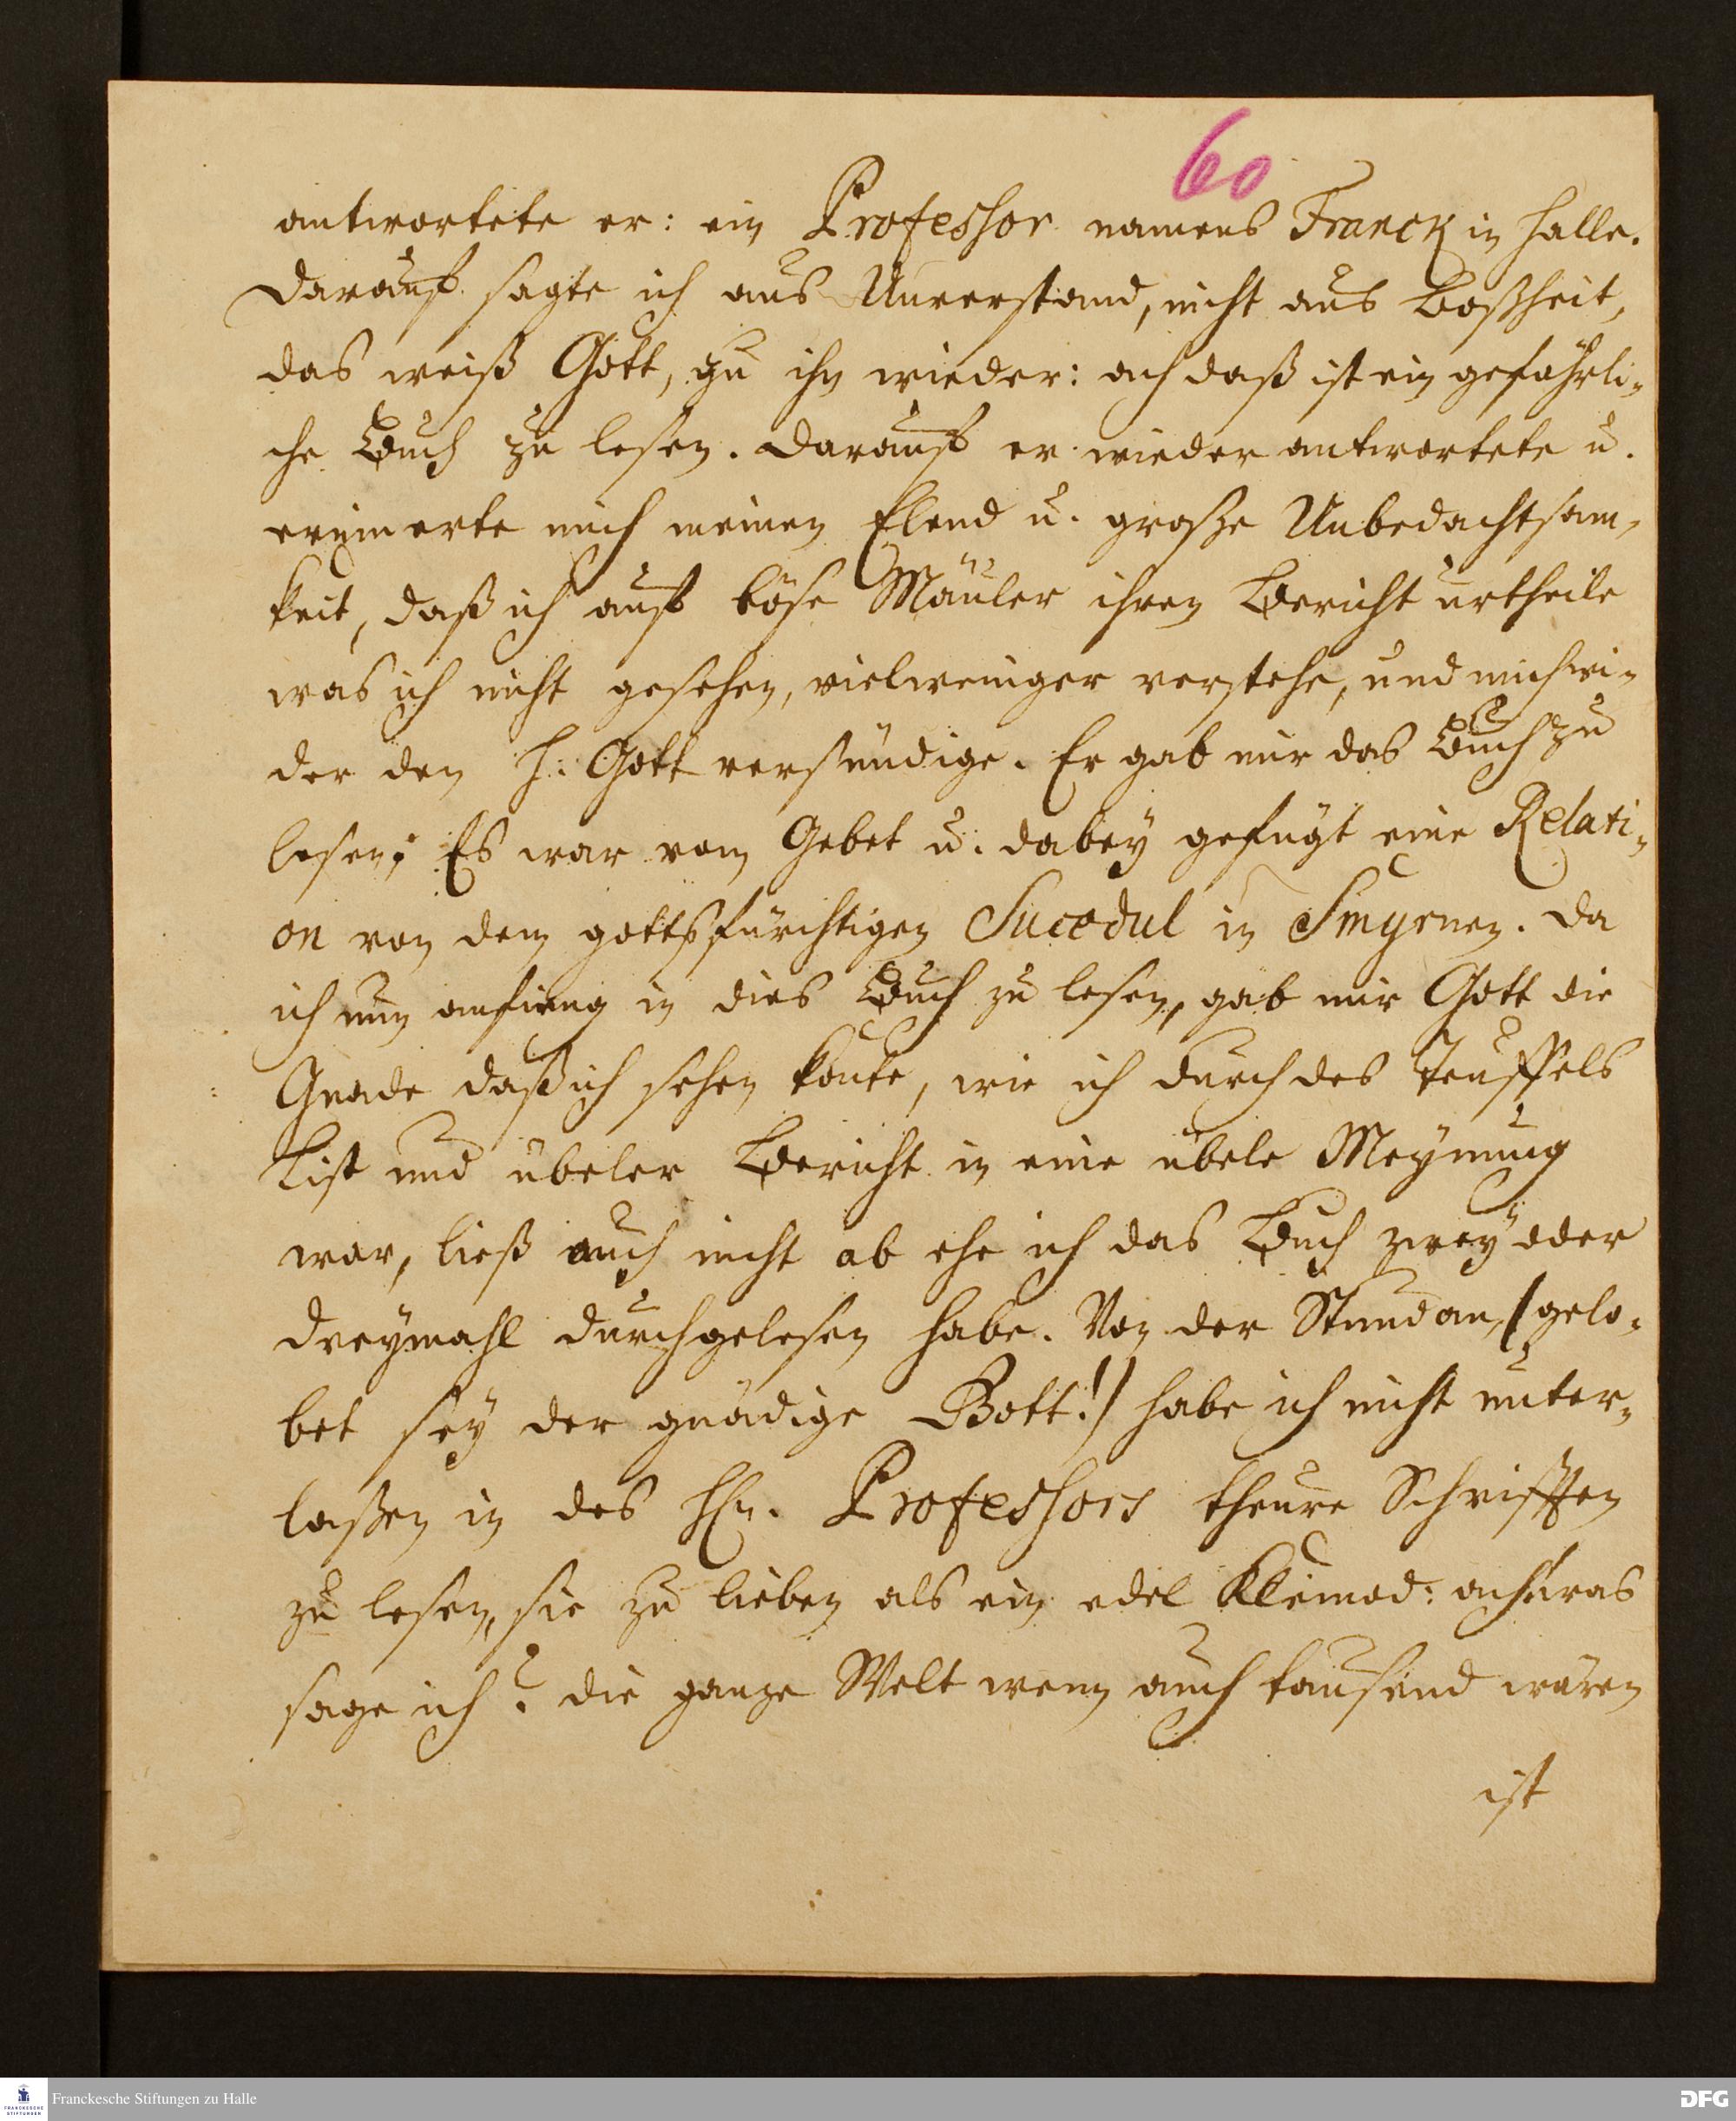 60
antwortete er: ein Professor namens Franck in Halle.
Darauf sagte ich aus Unverstand, nicht aus Boßheit,
das weiß Gott, zu ihn wieder: ach daß ist ein gefährli-
che Buch zu lesen. Darauf er wieder antwortete u.
erinnerte mich meinen Elend u. große Unbedachtsam-
keit, daß ich auf böse Mäuler ihren Bericht urtheile
was ich nicht gesehen, vielweniger verstehe, und mich wi-
der den H. Gott versündige. Er gab mir das Buch zu
lesen; Es war vom Gebet u. dabey gefügt eine Relati-
on von dem gottsfürchtigen Sucedul in Smyrnen. Da
ich nun anfieng in dies Buch zu lesen, gab mir Gott die
Gnade daß ich sehen konte, wie ich durch des Teuffels
List und übeler Bericht in eine übele Meynung
war, ließ auch nicht ab ehe ich das Buch zwey oder
dreymahl durchgelesen habe. Von der Stund an, (gelo-
bet sey der gnädige Gott!) habe ich nicht unter-
laßen in des Hn. Professors theure Schrifften
zu lesen, sie zu lieben als ein edel Kleinod: ach was
sage ich? die ganze Welt wenn auch tausend wären
ist
Franckesche Stiftungen zu Halle
FRANCKESCHE STIFTUNGEN
DFG